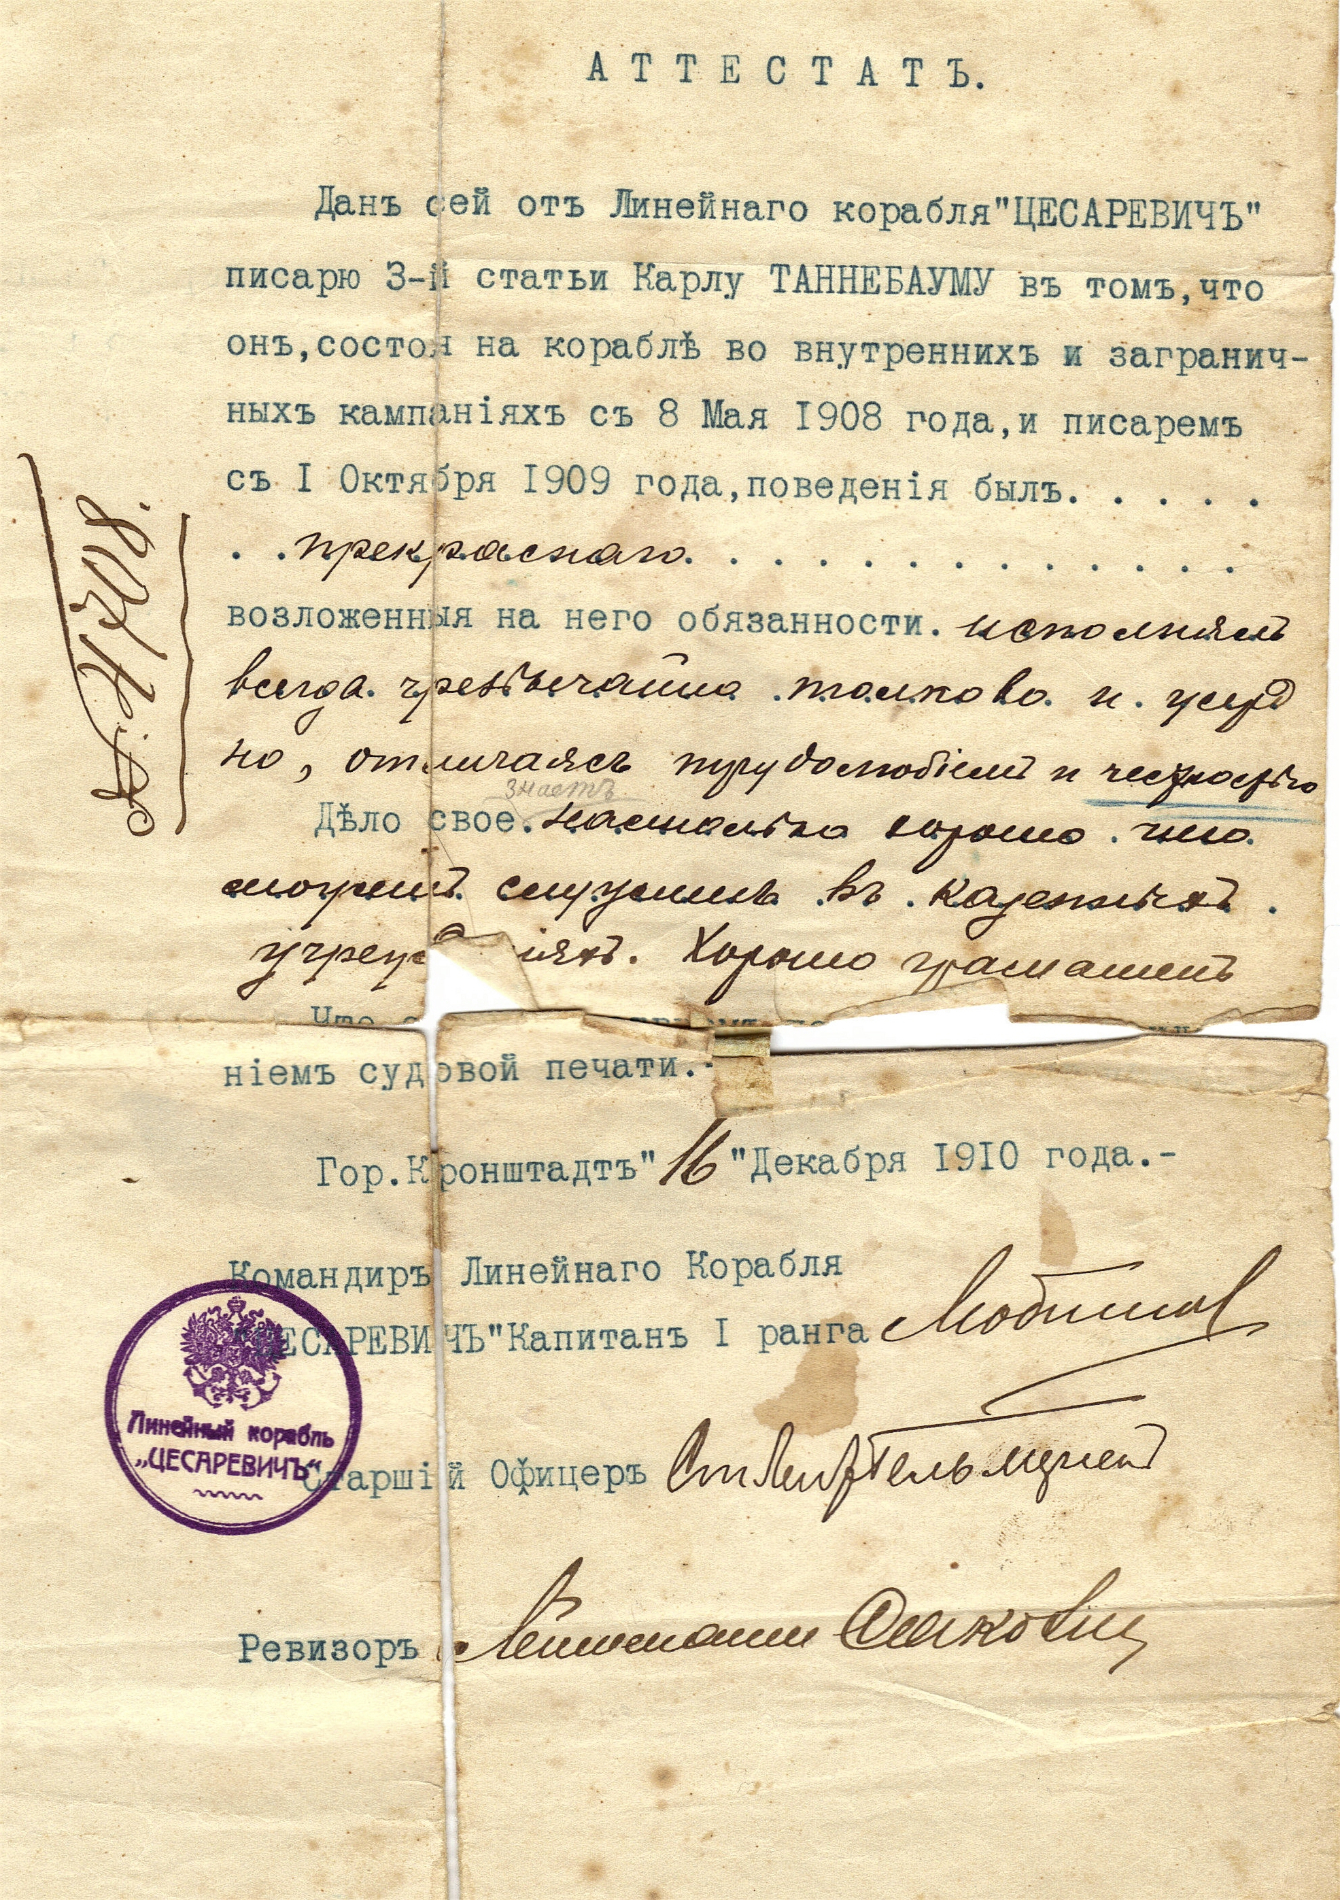 АТТЕСТАТЪ.
Данъ сей отъ Линейнаго корабля"ЦЕСАРЕВИЧЪ"
писарю 3-й статьи Карлу ТАННЕБАУМУ въ томъ,что
онъ,состоя на кораблѣ во внутреннихъ и загранич-
ныхъ кампаніяхъ съ 8 Мая 1908 года,и писаремъ
съ I Октября 1909 года,поведенія былъ. . . . . .
. . прекраснаго. . . . . . . . . . . . .
возложенныя на него обязанности. исполнялъ
всегда чрезвычайно толково и усерд
но, отличаясь трудолюбіемъ и честностью
знаетъ
Дѣло свое. настолько хорошо что
можетъ служить въ казенныхъ
учрежденіяхъ. Хорошо грамотенъ
Что
ніемъ судовой печати.-
Гор.Кронштадтъ"16"Декабря 1910 года.-
Командиръ Линейнаго Корабля
"ЦЕСАРЕВИЧЪ"Капитанъ I ранга Любимов
Старшій Офицеръ Ст. Лейт.
Ревизоръ Лейтенант
Линейный корабль
„ЦЕСАРЕВИЧЪ"